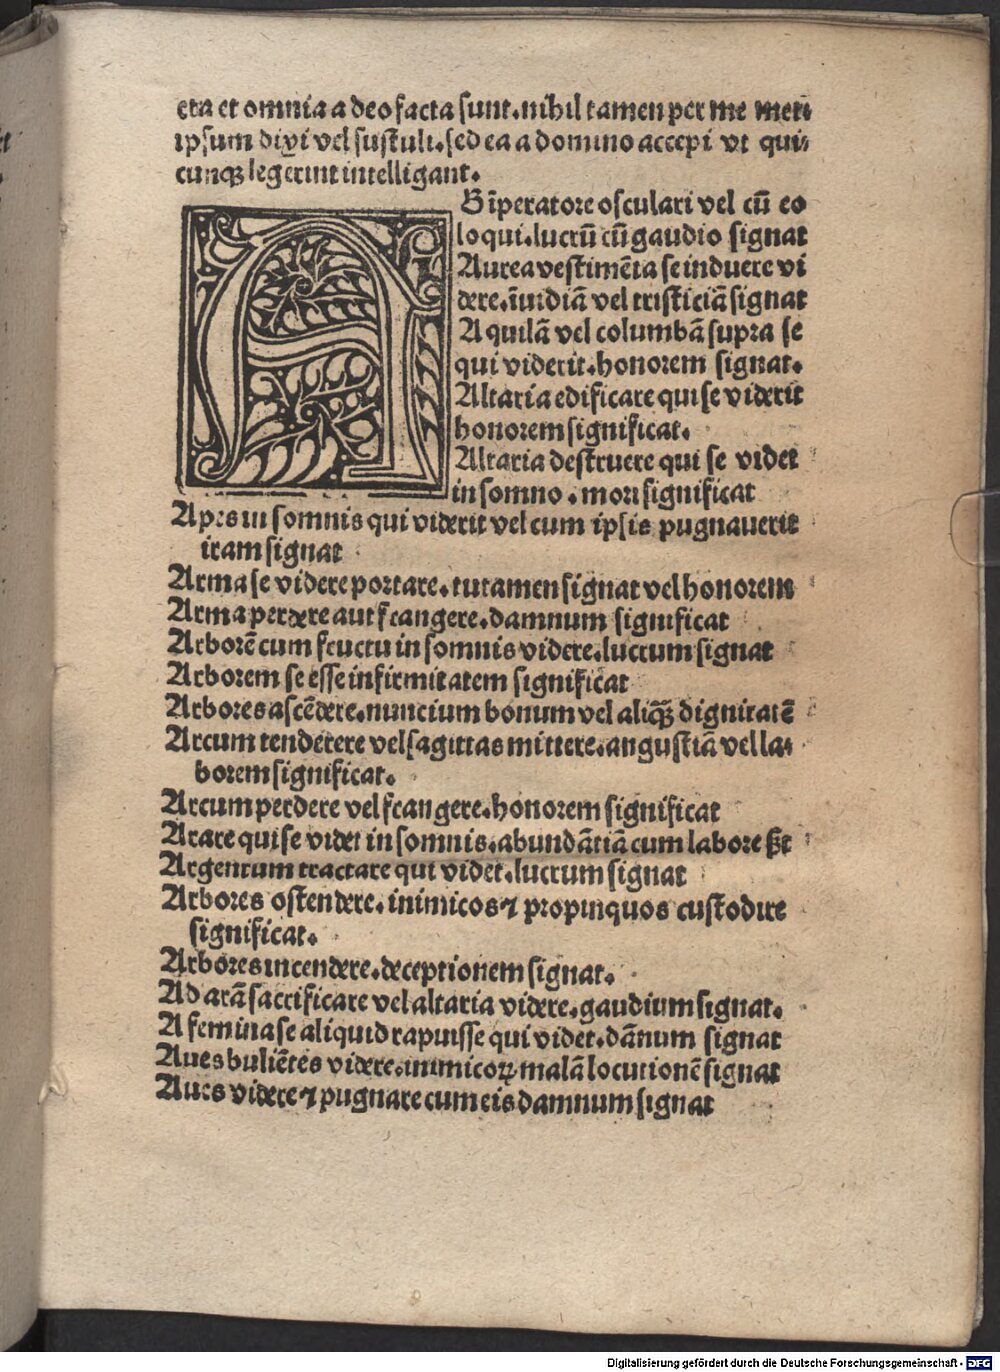 eta et omnia a deo facta sunt. nihil tamen per me meti
ipsum dixi vel sustuli. sed ea a domino accepi vt qui⸗
cunqꝫ legerint intelligant.
AB īperatore osculari vel cū eo
loqui. lucrū cū gaudio signat
Aurea vestimēta se induere vi
dere. īuidiā vel tristiciā signat
Aquilā vel columbā supra se
qui viderit. honorem signat.
Altaria edificare qui se viderit
honorem significat.
Altaria destruere qui se videt
in somno . mori significat
Apes in somnis qui viderit vel cum ipsis pugnauerit
iram signat
Arma se videre portare. tutamen signat vel honorem
Arma perdere aut frangere. damnum significat
Arborē cum fructu in somnis videre. lucrum signat
Arborem se esse infirmitatem significat
Arbores ascēdere. nuncium bonum vel aliqꝫ̄ dignitatē
Arcum tenderere vel sagittas mittere. angustiā vel la⸗
borem significat.
Arcum perdere vel frangere. honorem significat
Arare qui se videt in somnis. abundātiā cum labore sꝫt
Argentum tractare qui videt. lucrum signat
Arbores ostendere. inimicos ⁊ propinquos custodire
significat.
Arbores incendere. deceptionem signat.
Ad arā sacrificare vel altaria videre. gaudium signat.
A femina se aliquid rapuisse qui videt. dānum signat
Aues buliētes videre. inimicoꝝ malā locutionē signat
Aues videre ⁊ pugnare cum eis damnum signat
Digitalisierung gefördert durch die Deutsche Forschungsgemeinschaft - DFG